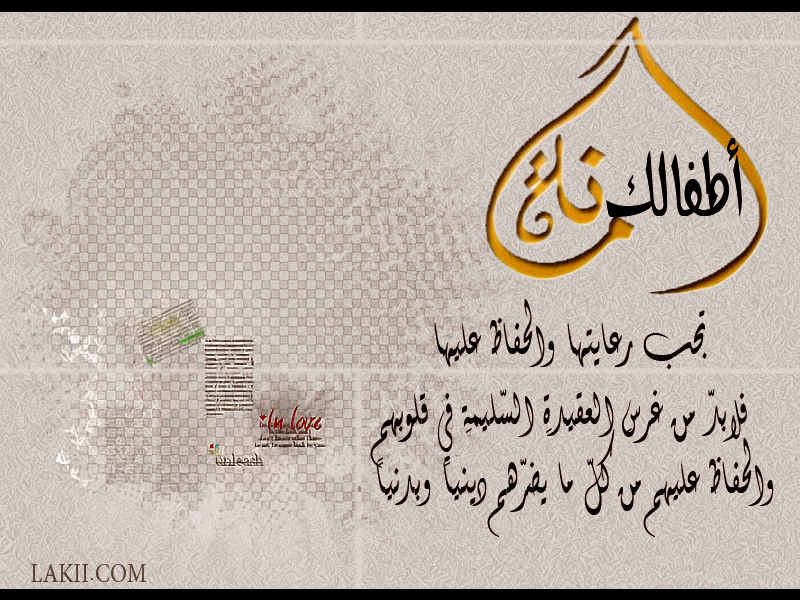 أطفالك أمانة
تجب رعايتها والحفاظ عليها
فلابدّ من غرس العقيدةِ السّليمةِ في قلوبهم
والحفاظ عليهم من كلّ ما يضرّهم دينياً وبدنياً
In love
unleash
LAKII.COM